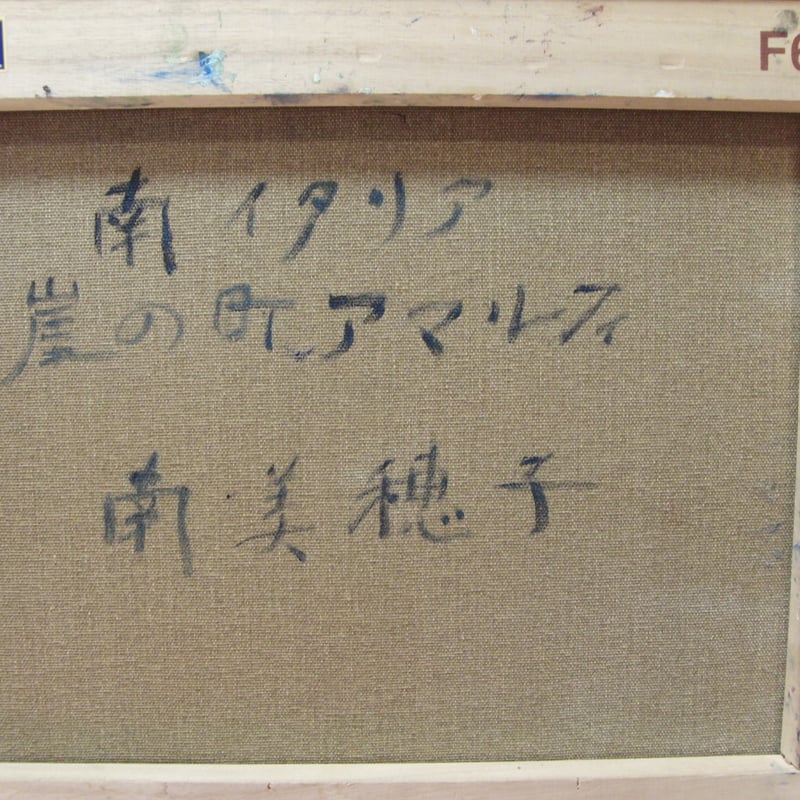 F6
南イタリア
崖の町アマルフィ
南美穂子